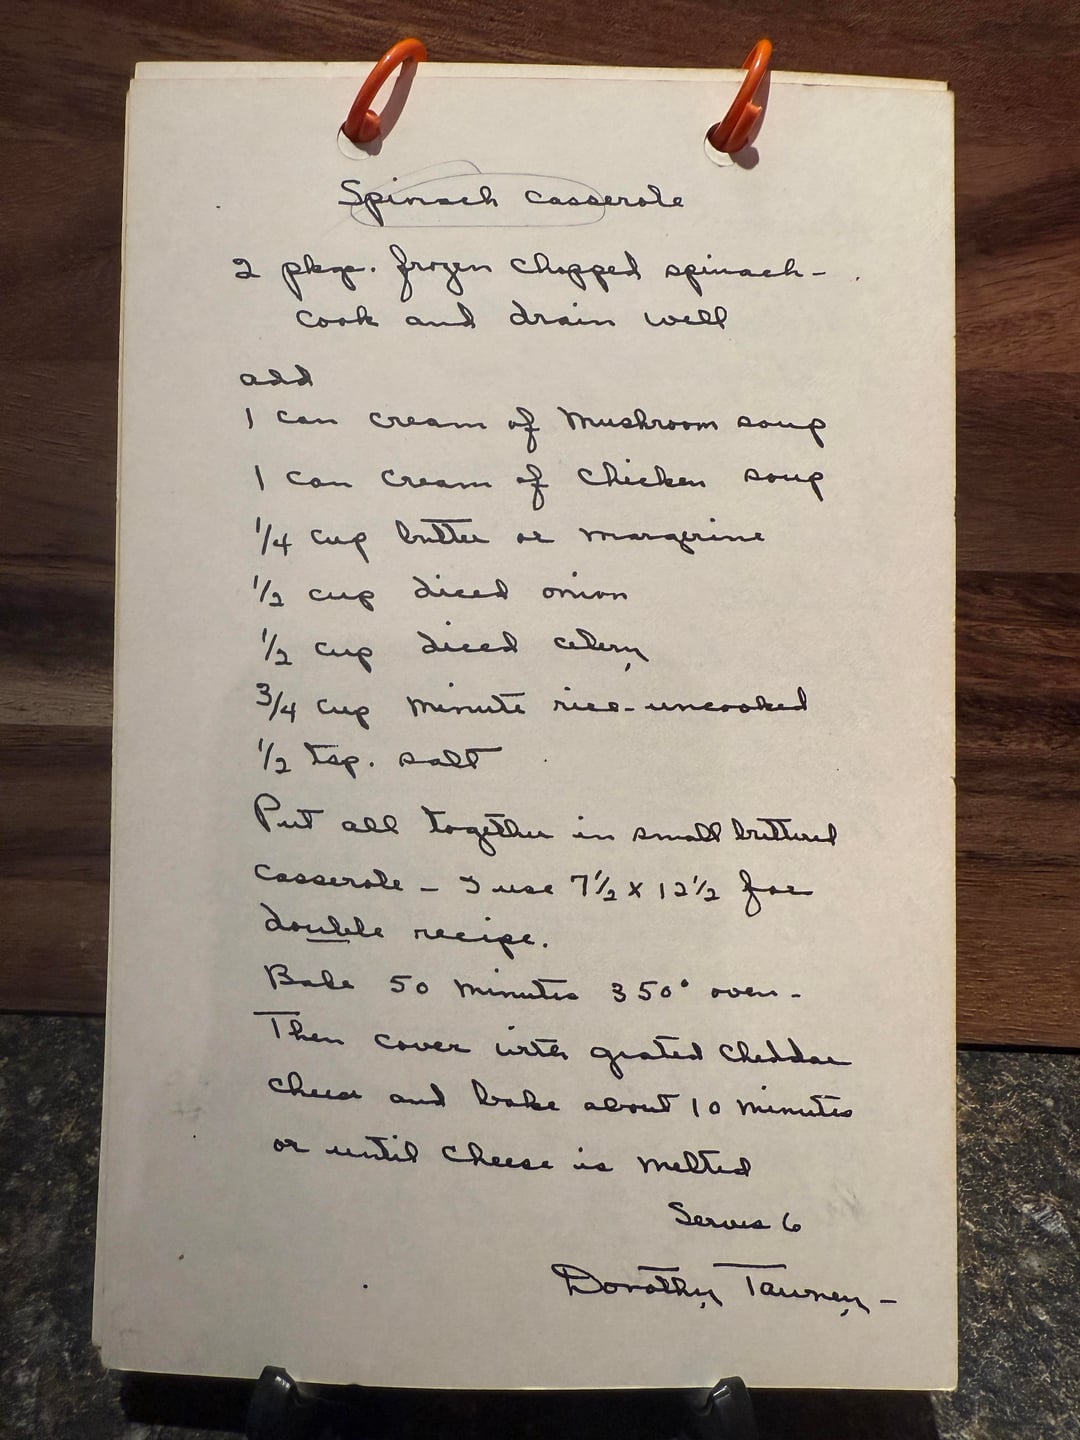 Spinach Casserole
2 pkge. frozen chopped spinach-
cook and drain well
add
1 can cream of Mushroom soup
1 can cream of chicken soup
1/4 cup butter or margerine
1/2 cup diced onion
1/2 cup diced celery
3/4 cup Minute rice-uncooked
1/2 tsp. salt
Put all together in small buttered
casserole - I use 7 1/2 x 12 1/2 for
double recipe.
Bake 50 minutes 350° oven -
Then cover with grated cheddar
cheese and bake about 10 minutes
or until cheese is melted
Serves 6
Dorothy Tawney -